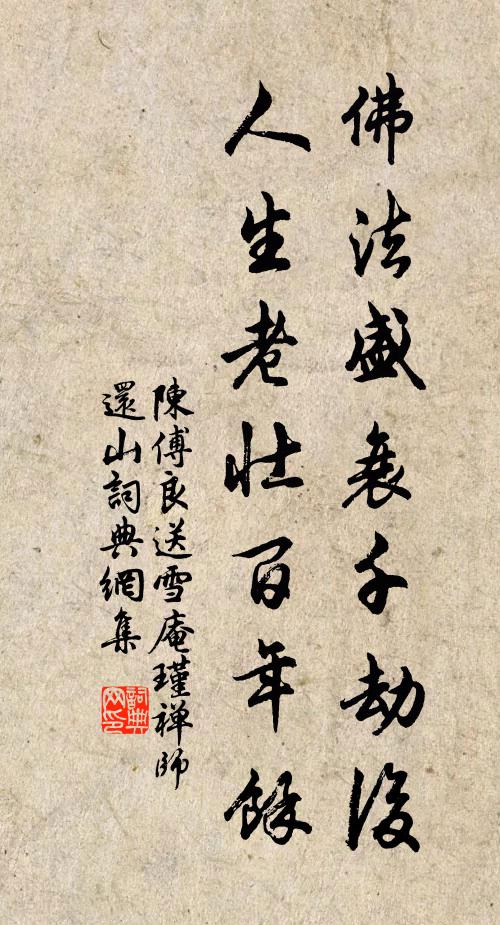 佛法盛衰千劫後
人生老壯百年餘
陳傅良送雪庵瑾禅師
還山詞典網集
詞典
网印